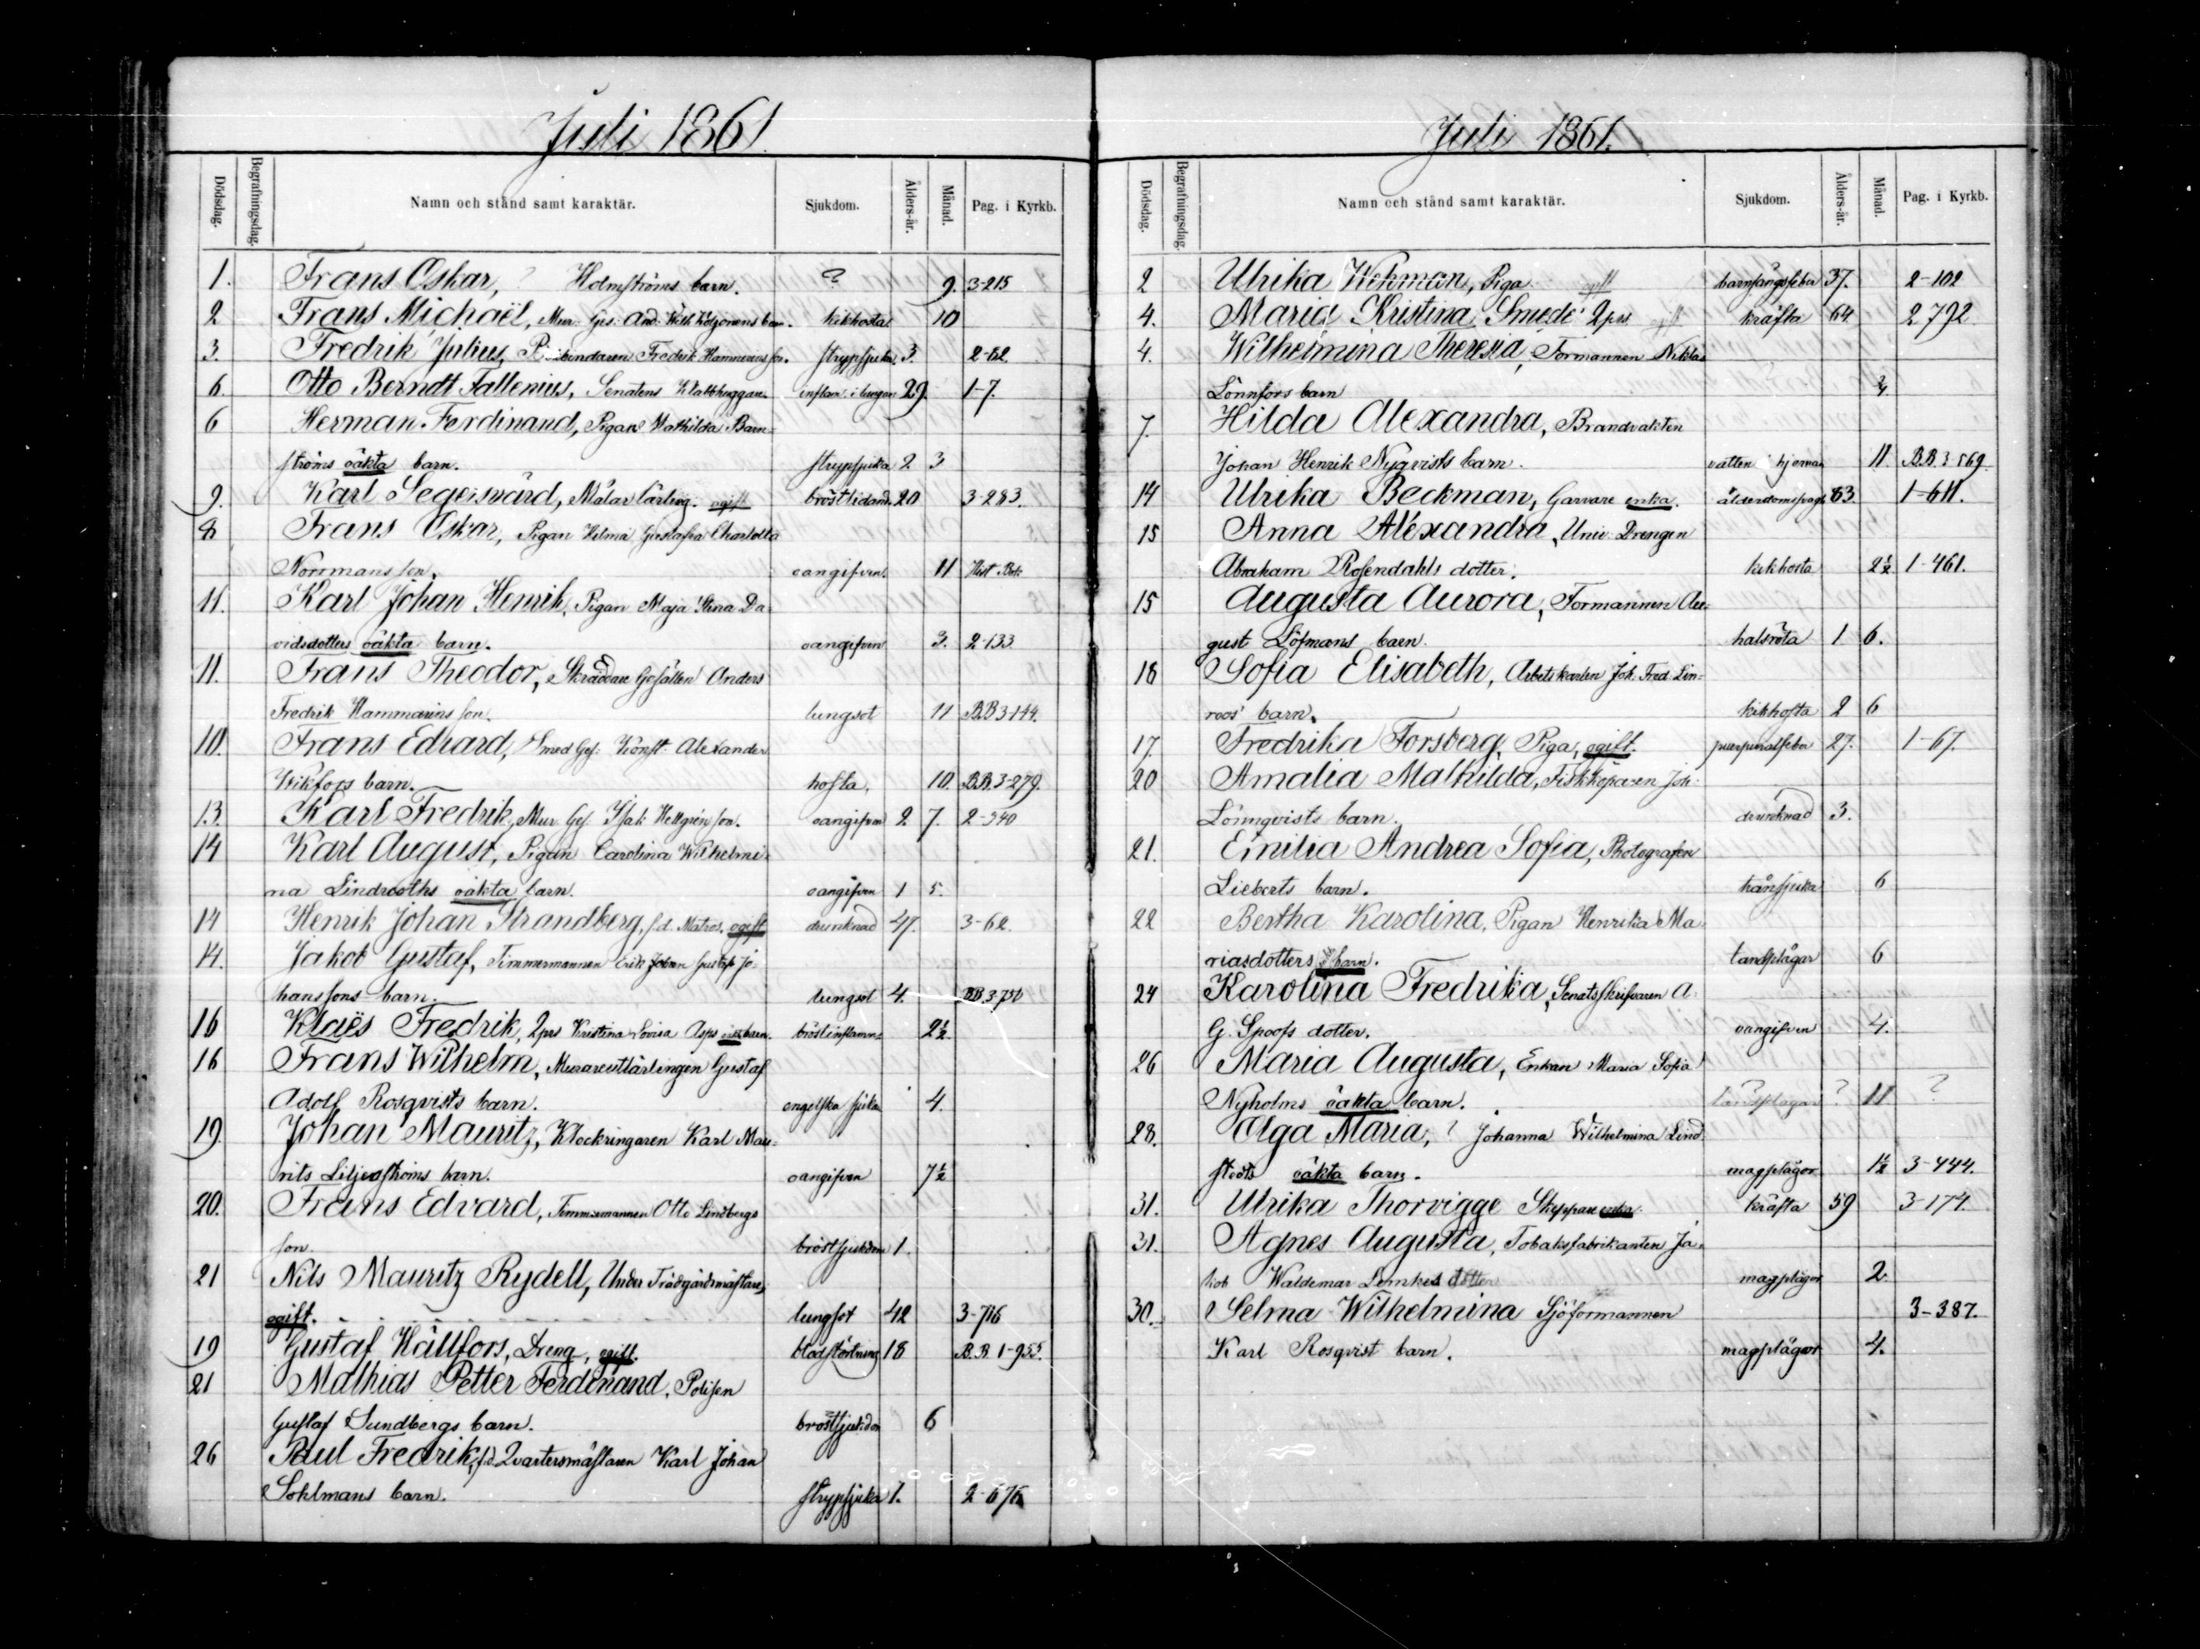 Juli 1861.
Dödsdag. Begrafningsdag. Namn och stånd samt karaktär. Sjukdom. Ålders-år. Månad. Pag. i Kyrkb.
1. Frans Oskar, ? Holmströms barn. ? 9. 3-215
2 Frans Michaël, Mur. Ges. And. barn. kikhosta 10
3. Fredrik Julius, Fredrik Hammarens son. strypsjuka 3. 2-62
6. Otto Berndt Fallenius, Senatens inflam. i lungan 29. 1-7.
6 Herman Ferdinand, Pigan Mathilda Barn-
ströms oäkta barn. strypsjuka 2 3
9. Karl Segersvärd, Målar lärling. ogift bröstlidand. 20 3-283.
8 Frans Oskar, Pigan Helma Gustafva Charlotta
Norrmans son. oangifven. 11 Hist. Bok.
11. Karl Johan Henrik, Pigan Maja Stina Da-
vidsdotters oäkta barn. oangifven 3. 2-133
11. Frans Theodor, Skräddare Gesällen Anders
Fredrik Hammarins son. lungsot 11 B.B 3-144.
10. Frans Edvard, Smed Ges. Konst. Alexander
Wikfors barn. hosta, 10. B.B. 3-279.
13. Karl Fredrik, Mur. Ges. Isak Hellgrén son. oangifven 2 7. 2-340
14 Karl August, Pigan Carolina Wilhelmi-
na Lindrooths oäkta barn. oangifven 1 5.
14 Henrik Johan Strandberg, f.d. Matros, ogift drunknad 47. 3-62.
14. Jakob Gustaf, Timmermannen Erik Johan Gustaf Jo-
hanssons barn. lungsot 4. B.B. 3.
16 Klaës Fredrik, 2prs Kristina Lovisa Asps barn. bröstinflamm: 2½.
16 Frans Wilhelm, Murareutlärlingen Gustaf
Adolf Rosqvists barn. engelska sjukan 4.
19. Johan Mauritz, Klockringaren Karl Mau-
rits Liljeströms barn. oangifven 7½
20. Frans Edvard, Timmermannen Otto Lindbergs
son. bröstsjukdom 1.
21 Nils Mauritz Rydell, Under Trädgårdsmästare,
ogift. lungsot 42 3-716
19 Gustaf Hällfors, Dreng, ogift. blodstörtning 18 B.B. 1-955.
21 Mathias Petter Ferdinand, Polisen
Gustaf Sundbergs barn. bröstsjukdom 6
26 Paul Fredrik, f.d. Qvartersmästaren Karl Johan
Sohlmans barn. strypsjuka 1. 2-676
Juli 1861.
Dödsdag. Begrafningsdag. Namn och stånd samt karaktär. Sjukdom. Ålders-år. Månad. Pag. i Kyrkb.
2 Ulrika Wekman, Piga ogift barnsängsfeber 37. 2-102
4. Maria Kristina Smede 2prs kräfta 64. 2 792
4. Wilhelmina Theresia, Formannen Niklas
Lönnfors barn
7. Hilda Alexandra, Brandvakten
Johan Henrik Nyqvists barn. vatten i hjernan 11. B.B. 3-569.
14 Ulrika Beckman, Garvare enka. 83. 1-611.
15 Anna Alexandra, Univ. Drengen
Abraham Rosendahls dotter. kikhosta 2½ 1-461.
15 Augusta Aurora, Formannen Au-
gust Löfmans barn. halsröta 1 6.
18 Sofia Elisabeth, Arbetskarlen Joh. Fred. Lin-
roos' barn. kikhosta 2 6
17. Fredrika Forsberg, Piga, ogift. puerperalfeber 27. 1-67.
20 Amalia Mathilda, Fiskköparen Joh.
Lönnqvists barn. drunknad 3.
21. Emilia Andrea Sofia, Photografen
Lieberts barn. trånsjuka 6
22 Bertha Karolina, Pigan Henrika Ma-
riasdotters barn. tandplågor 6
24 Karolina Fredrika, Senatsskrifvaren A.
G. Spoofs dotter. oangifven 4.
26 Maria Augusta, Enkan Maria Sofia
Nyholms oäkta barn. tandplågor ? 11 ?
28. Olga Maria, ? Johanna Wilhelmina Lind-
stedts oäkta barn. magplågor 1½ 3-444.
31. Ulrika Thorvigge Skeppare enka. kräfta 59 3-174.
31. Agnes Augusta, Tobaksfabrikanten Ja-
kob Waldemar Lemkes dotter magplågor 2.
30. Selma Wilhelmina Sjöformannen 3-387.
Karl Rosqvist barn. magplågor 4.